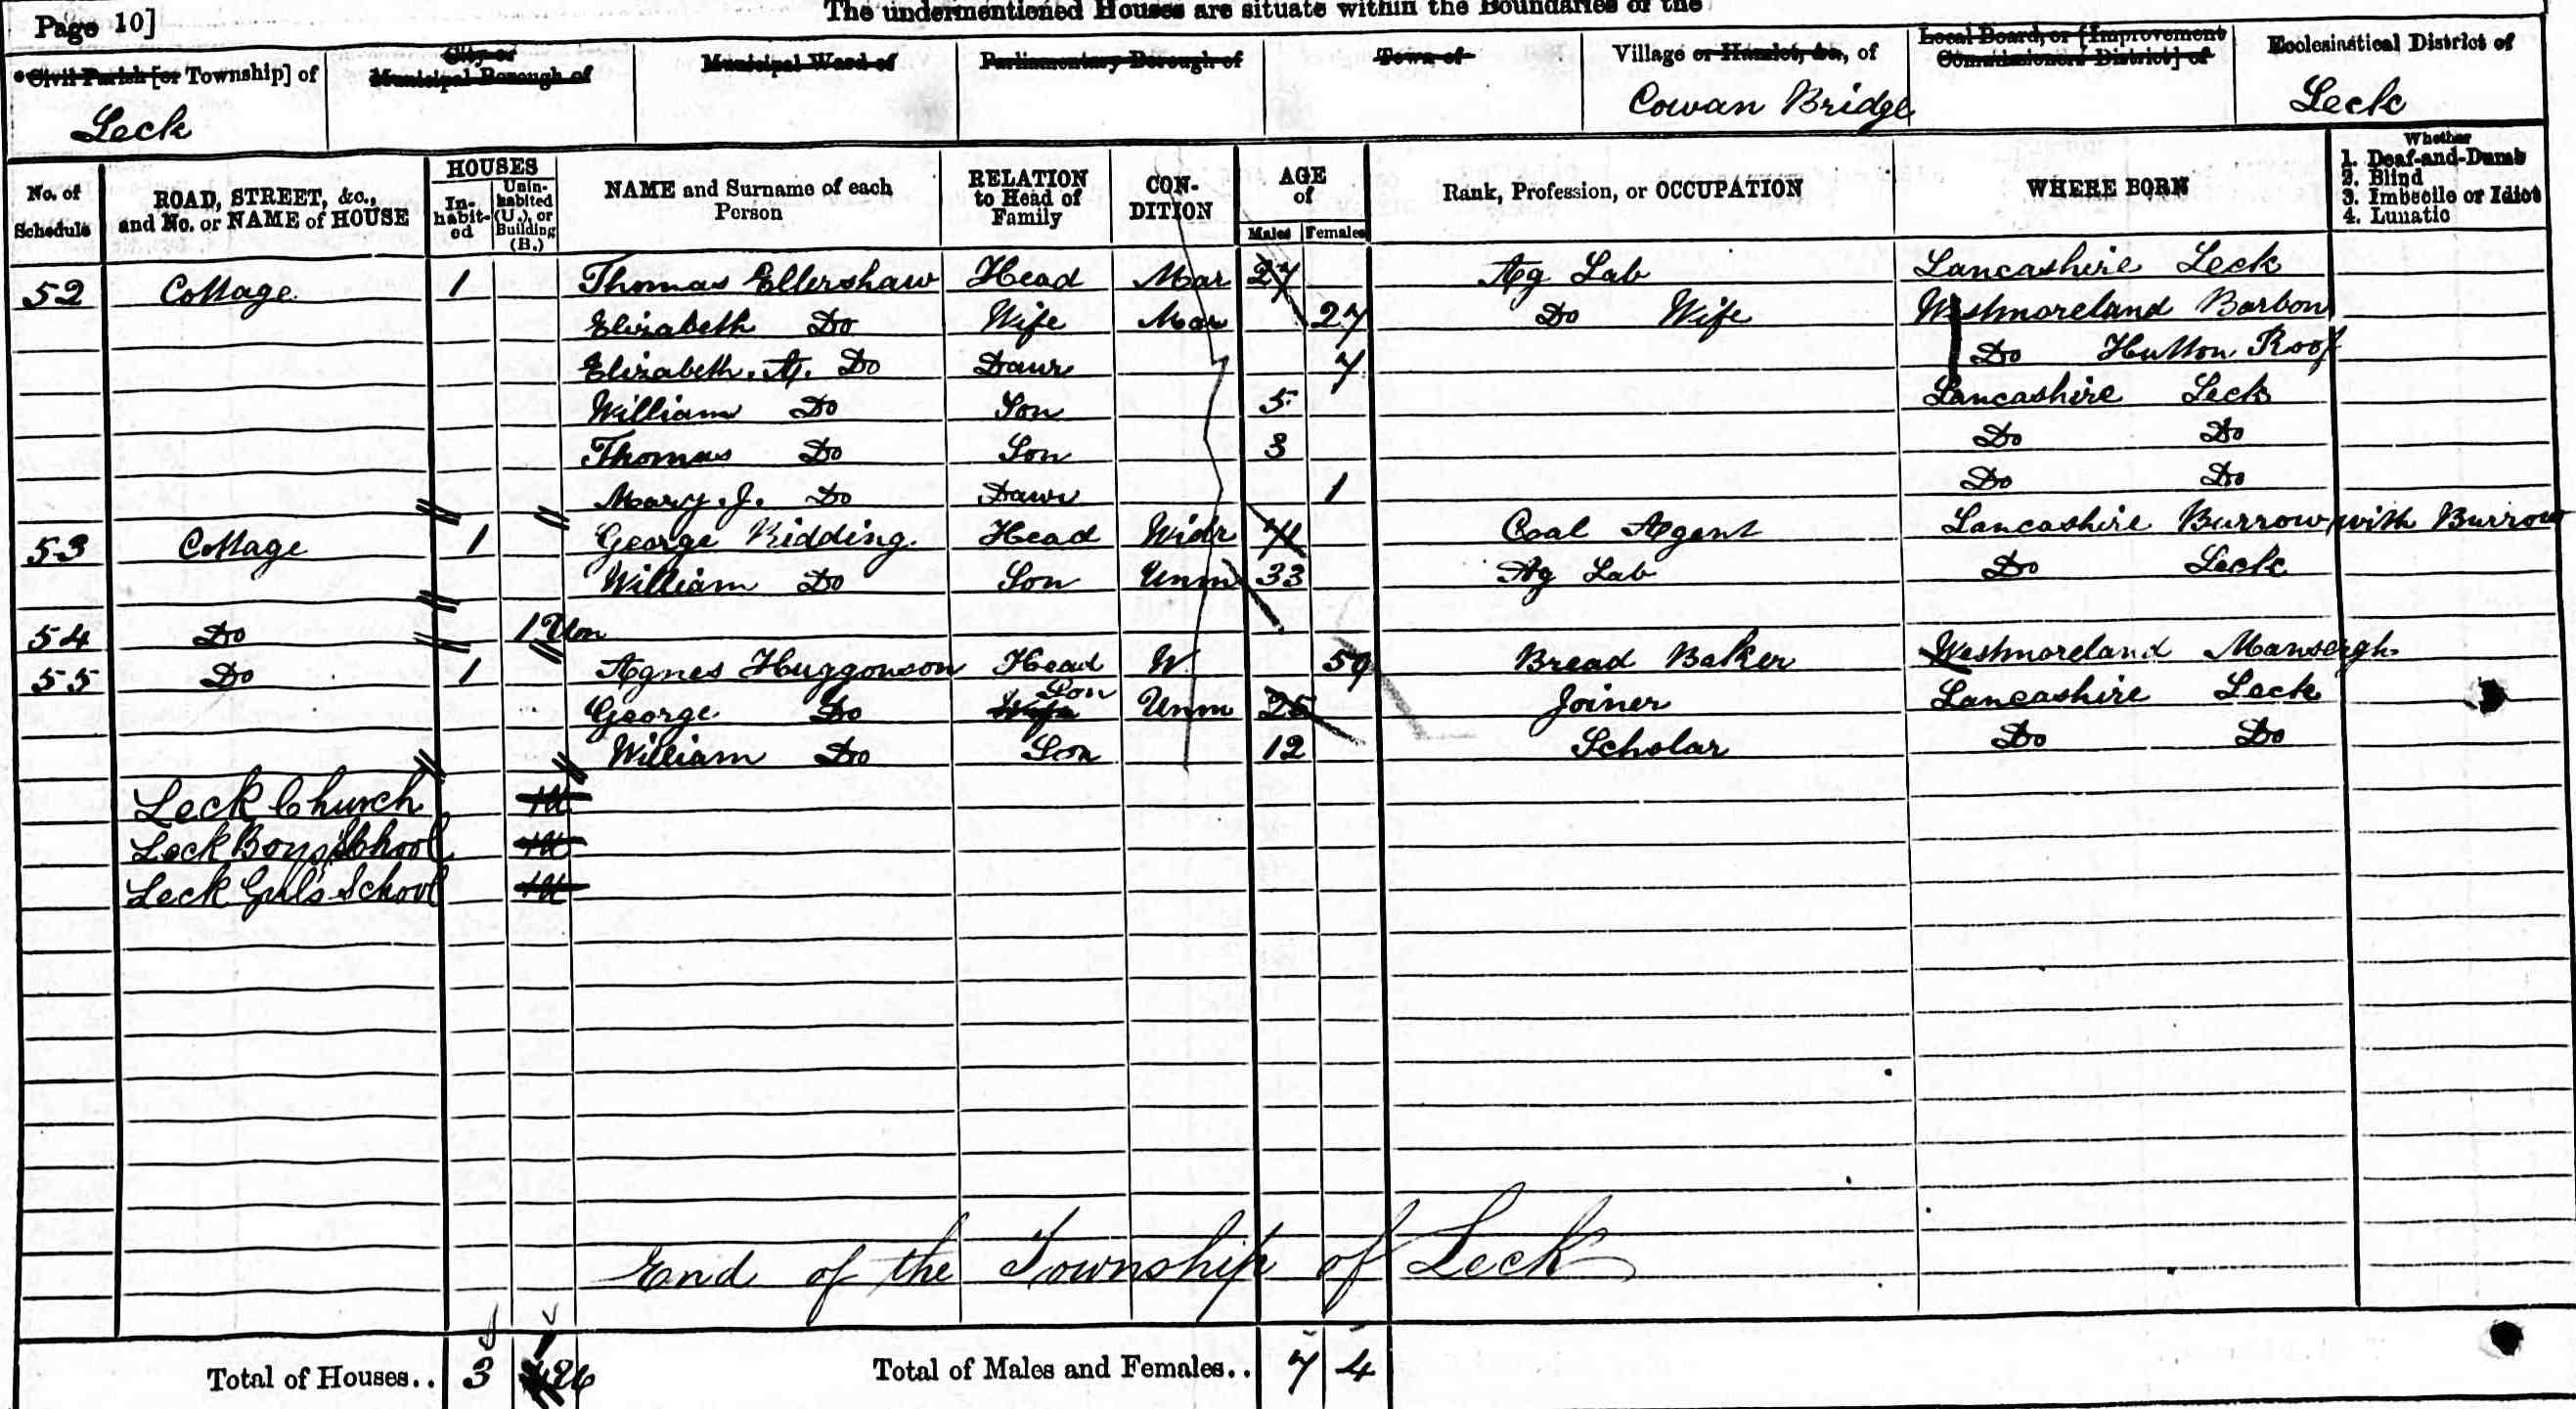 The undermentioned Houses are situate within the Boundaries of the
Page 10]
Civil Parish [or Township] of
Leck
City or Municipal Borough of
Municipal Ward of
Parliamentary Borough of
Town of
Village or Hamlet, &c., of
Cowan Bridge
Local Board, or [Improvement Commissioners District] of
Ecclesiastical District of
Leck
No. of Schedule
ROAD, STREET, &c., and No. or NAME of HOUSE
HOUSES
In-habit-ed
Unin-habited (U.), or Building (B.)
NAME and Surname of each Person
RELATION to Head of Family
CON-DITION
AGE of
Males Females
Rank, Profession, or OCCUPATION
WHERE BORN
Whether
1. Deaf-and-Dumb
2. Blind
3. Imbecile or Idiot
4. Lunatic
52 Cottage 1 Thomas Ellershaw Head Mar 27 Ag Lab Lancashire Leck
Elizabeth Do Wife Mar 27 Do Wife Westmoreland Barbon
Elizabeth. A. Do Daur 7 Do Hutton Roof
William Do Son 5 Lancashire Leck
Thomas Do Son 3 Do Do
Mary. J. Do Daur 1 Do Do
53 Cottage 1 George Ridding Head Widr 71 Coal Agent Lancashire Burrow with Burrow
William Do Son Unm 33 Ag Lab Do Leck
54 Do 1 Un
55 Do 1 Agnes Huggonson Head W. 59 Bread Baker Westmoreland Mansergh
George Do Wife Son Unm 25 Joiner Lancashire Leck
William Do Son 12 Scholar Do Do
Leck Church 1U
Leck Boys School 1U
Leck Girls School 1U
End of the Township of Leck
Total of Houses.. 3 Total of Males and Females.. 7 4